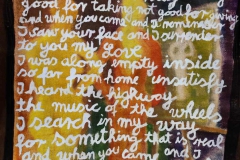 good for taking not good for giving
and when you came and I
I saw your face and I surrender
to you my love
I was alone empty inside
so far from home unsatisfy
I hear the highway
the music of the wheels
I search in my way
for something that is real
and when you came and I